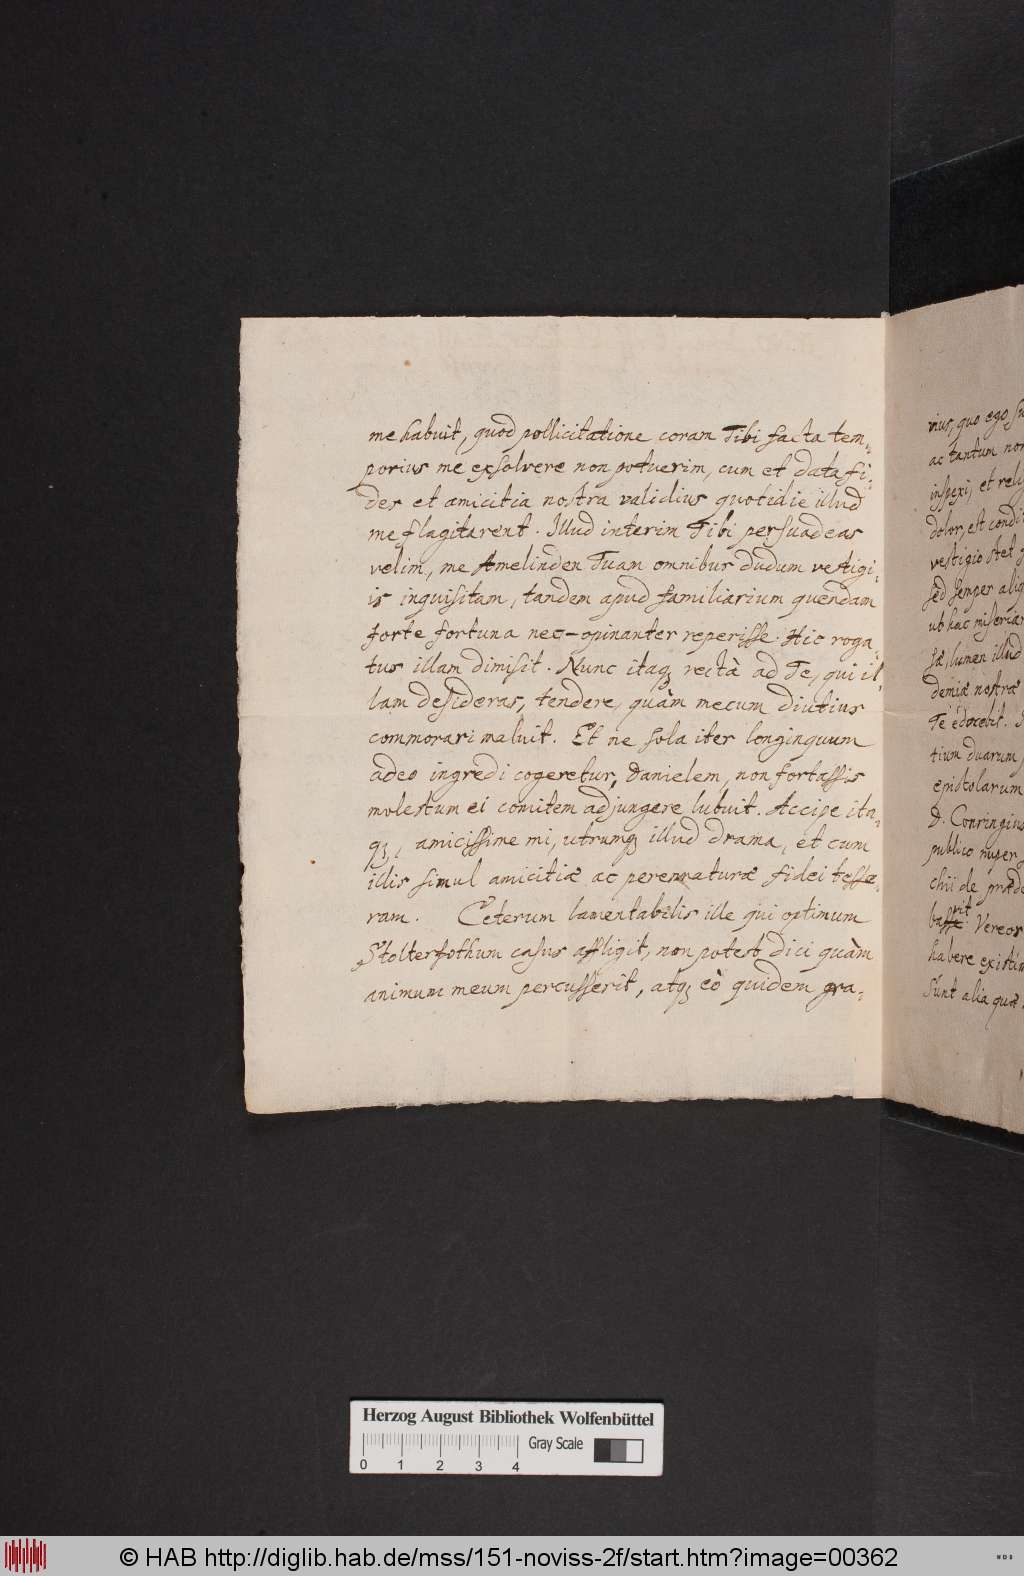 me habuit, quod pollicitatione coram Tibi facta tem-
porius me exsolvere non potuerim, cum et data fi-
des et amicitia nostra validius quotidie illud
me flagitarent. Illud interim Tibi persuadeas
velim, me Amelinden Tuam omnibus dudum vestigi-
is inquisitam, tandem apud familiarium quendam
forte fortuna nec-opinanter reperisse. Hic roga-
tus illam dimisit. Nunc itaq; rectà ad Te, qui il-
lam desideras, tendere, quàm mecum diutius
commorari maluit. Et ne sola iter longinquum
adeo ingredi cogeretur, Danielem, non fortassis
molestum ei comitem adjungere lubuit. Accipe ita-
q;, amicissime mi, utrumq; illud drama, et cum
illis simul amicitiæ ac perennaturæ fidei tesse-
ram. Ceterum lamentabilis ille qui optimum
Stolterfothum casus affligit, non potest dici quàm
animum meum percusserit, atq; eò quidem gra-
vius, quo ego
ac tantum non
inspexi, et
dolor, est
vestigio stet
sed semper
ut hac
sæ, lumen illud
demiæ nostræ
Te edocebit.
tium duarum
epistolarum
D. Conringius
publico nuper
chii de
rit
Vereor
habere
Sunt alia quæ
Herzog August Bibliothek Wolfenbüttel
Gray Scale
0 1 2 3 4
© HAB http://diglib.hab.de/mss/151-noviss-2f/start.htm?image=00362